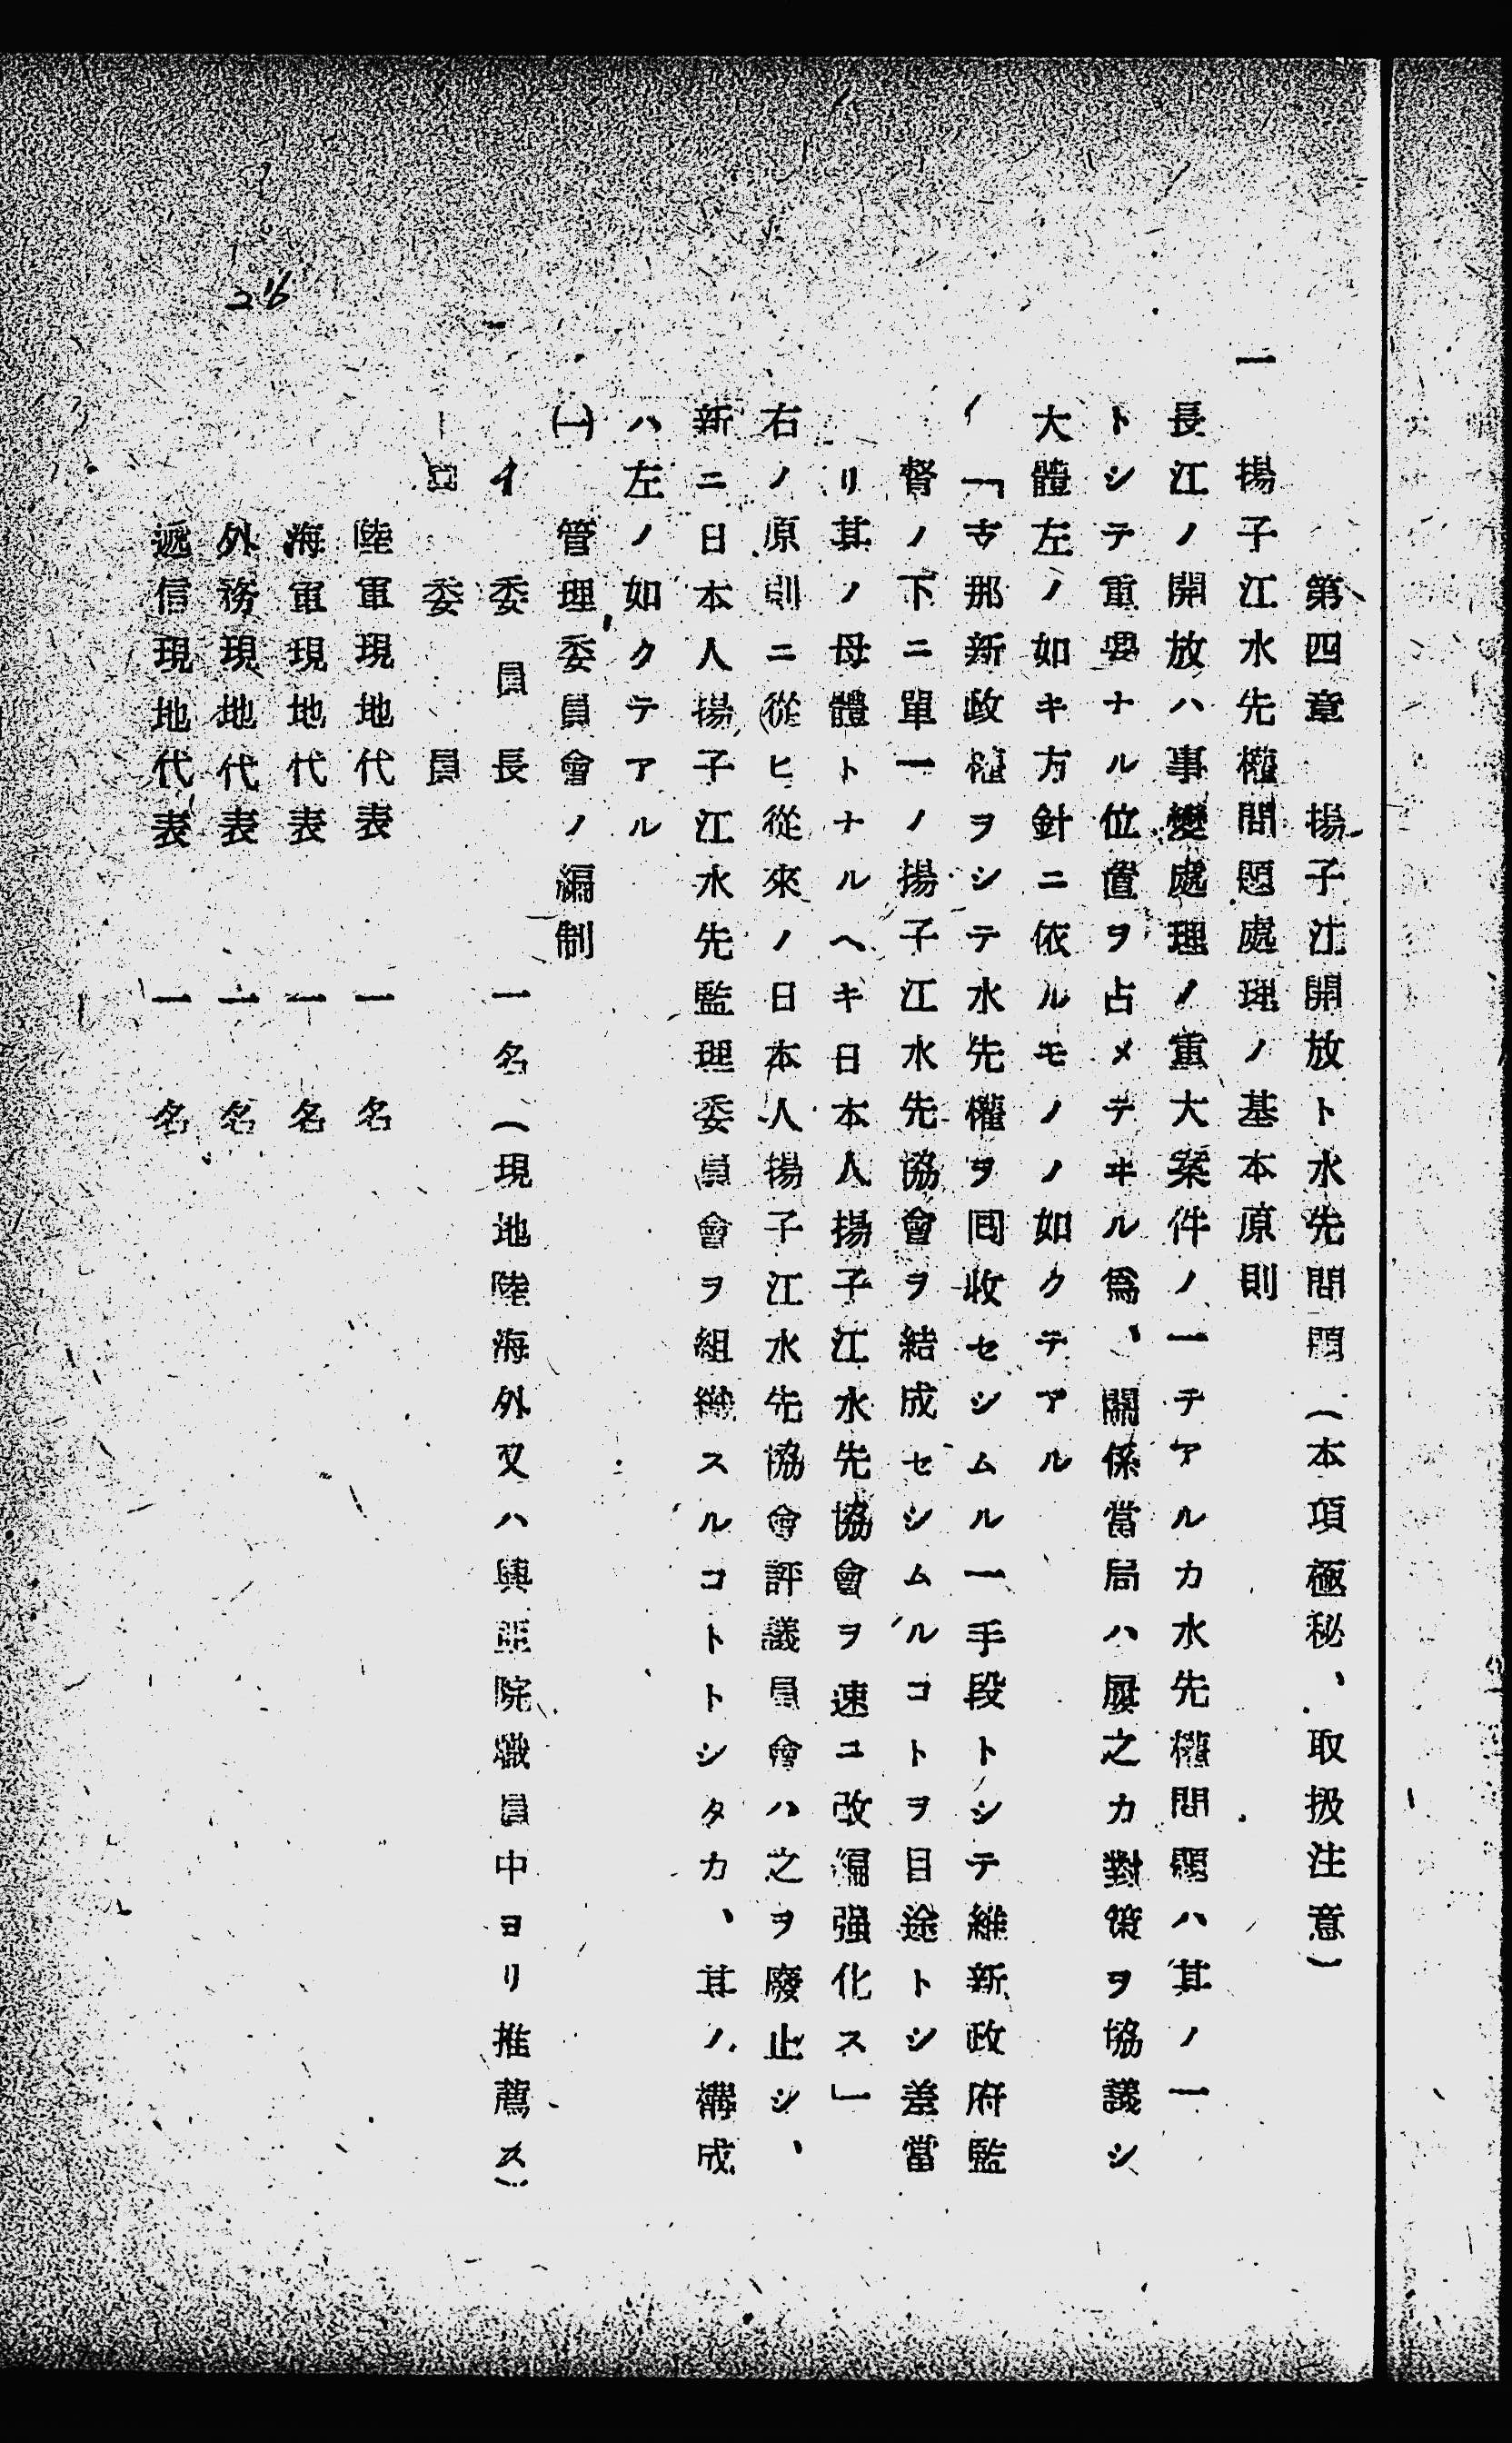 第四章　揚子江開放ト水先問題（本項極秘、取扱注意）
一　揚子江水先權問題處理ノ基本原則
長江ノ開放ハ事變處理ノ重大案件ノ一テアルカ水先權問題ハ其ノ一
トシテ重要ナル位置ヲ占メテヰル爲、關係當局ハ屢之カ對策ヲ協議シ
大體左ノ如キ方針ニ依ルモノノ如クテアル
「支那新政權ヲシテ水先權ヲ囘收セシムル一手段トシテ維新政府監
督ノ下ニ單一ノ揚子江水先協會ヲ結成セシムルコトヲ目途トシ差當
リ其ノ母體トナルヘキ日本人揚子江水先協會ヲ速ニ改編强化ス」
右ノ原則ニ從ヒ從來ノ日本人揚子江水先協會評議員會ハ之ヲ廢止シ、
新ニ日本人揚子江水先監理委員會ヲ組織スルコトトシタカ、其ノ構成
ハ左ノ如クテアル
㈠　管理委員會ノ編制
イ　委員長　一名（現地陸海外又ハ興亞院職員中ヨリ推薦ス）
ロ　委員
陸軍現地代表　一名
海軍現地代表　一名
外務現地代表　一名
遞信現地代表　一名
216